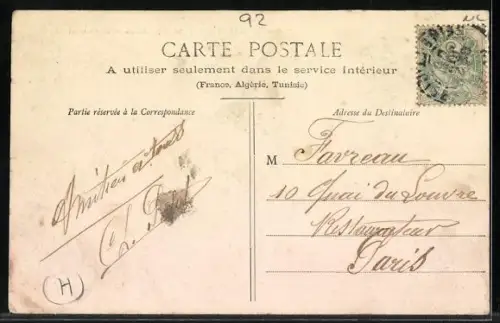 92
CARTE POSTALE
A utiliser seulement dans le service intérieur
(France, Algérie, Tunisie)
Partie réservée à la Correspondance
Adresse du Destinataire
Amitiés à tous
M Favreau
10 Quai du Louvre
Restaurateur
Paris
H